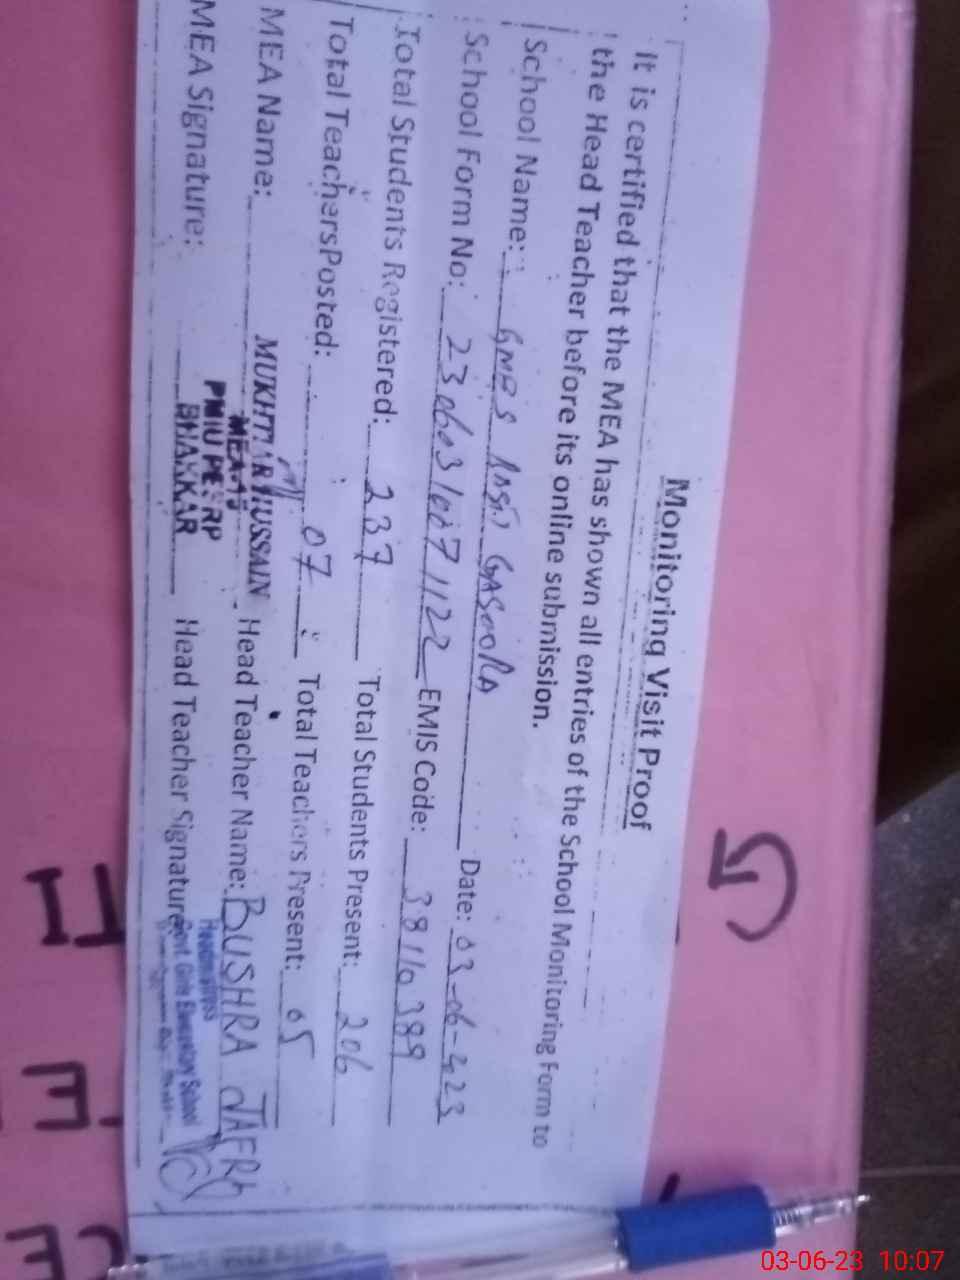 Monitoring Visit Proof
It is certified that the MEA has shown all entries of the School Monitoring Form to
the Head Teacher before its online submission.
School Name: GMES Date: 03-06-2023
School Form No: 23060310071122 EMIS Code: 38110389
Total Students Registered: 237 Total Students Present: 206
Total Teachers Posted: 07 Total Teachers Present: 05
MEA Name: MUKHTIAR HUSSAIN Head Teacher Name: BUSHRA JAFRI
MEA-13
MEA Signature: PMIU PESRP Head Teacher Signature:
BHAKKAR
Headmistress
Govt. Girls Elementary School
03-06-23 10:07